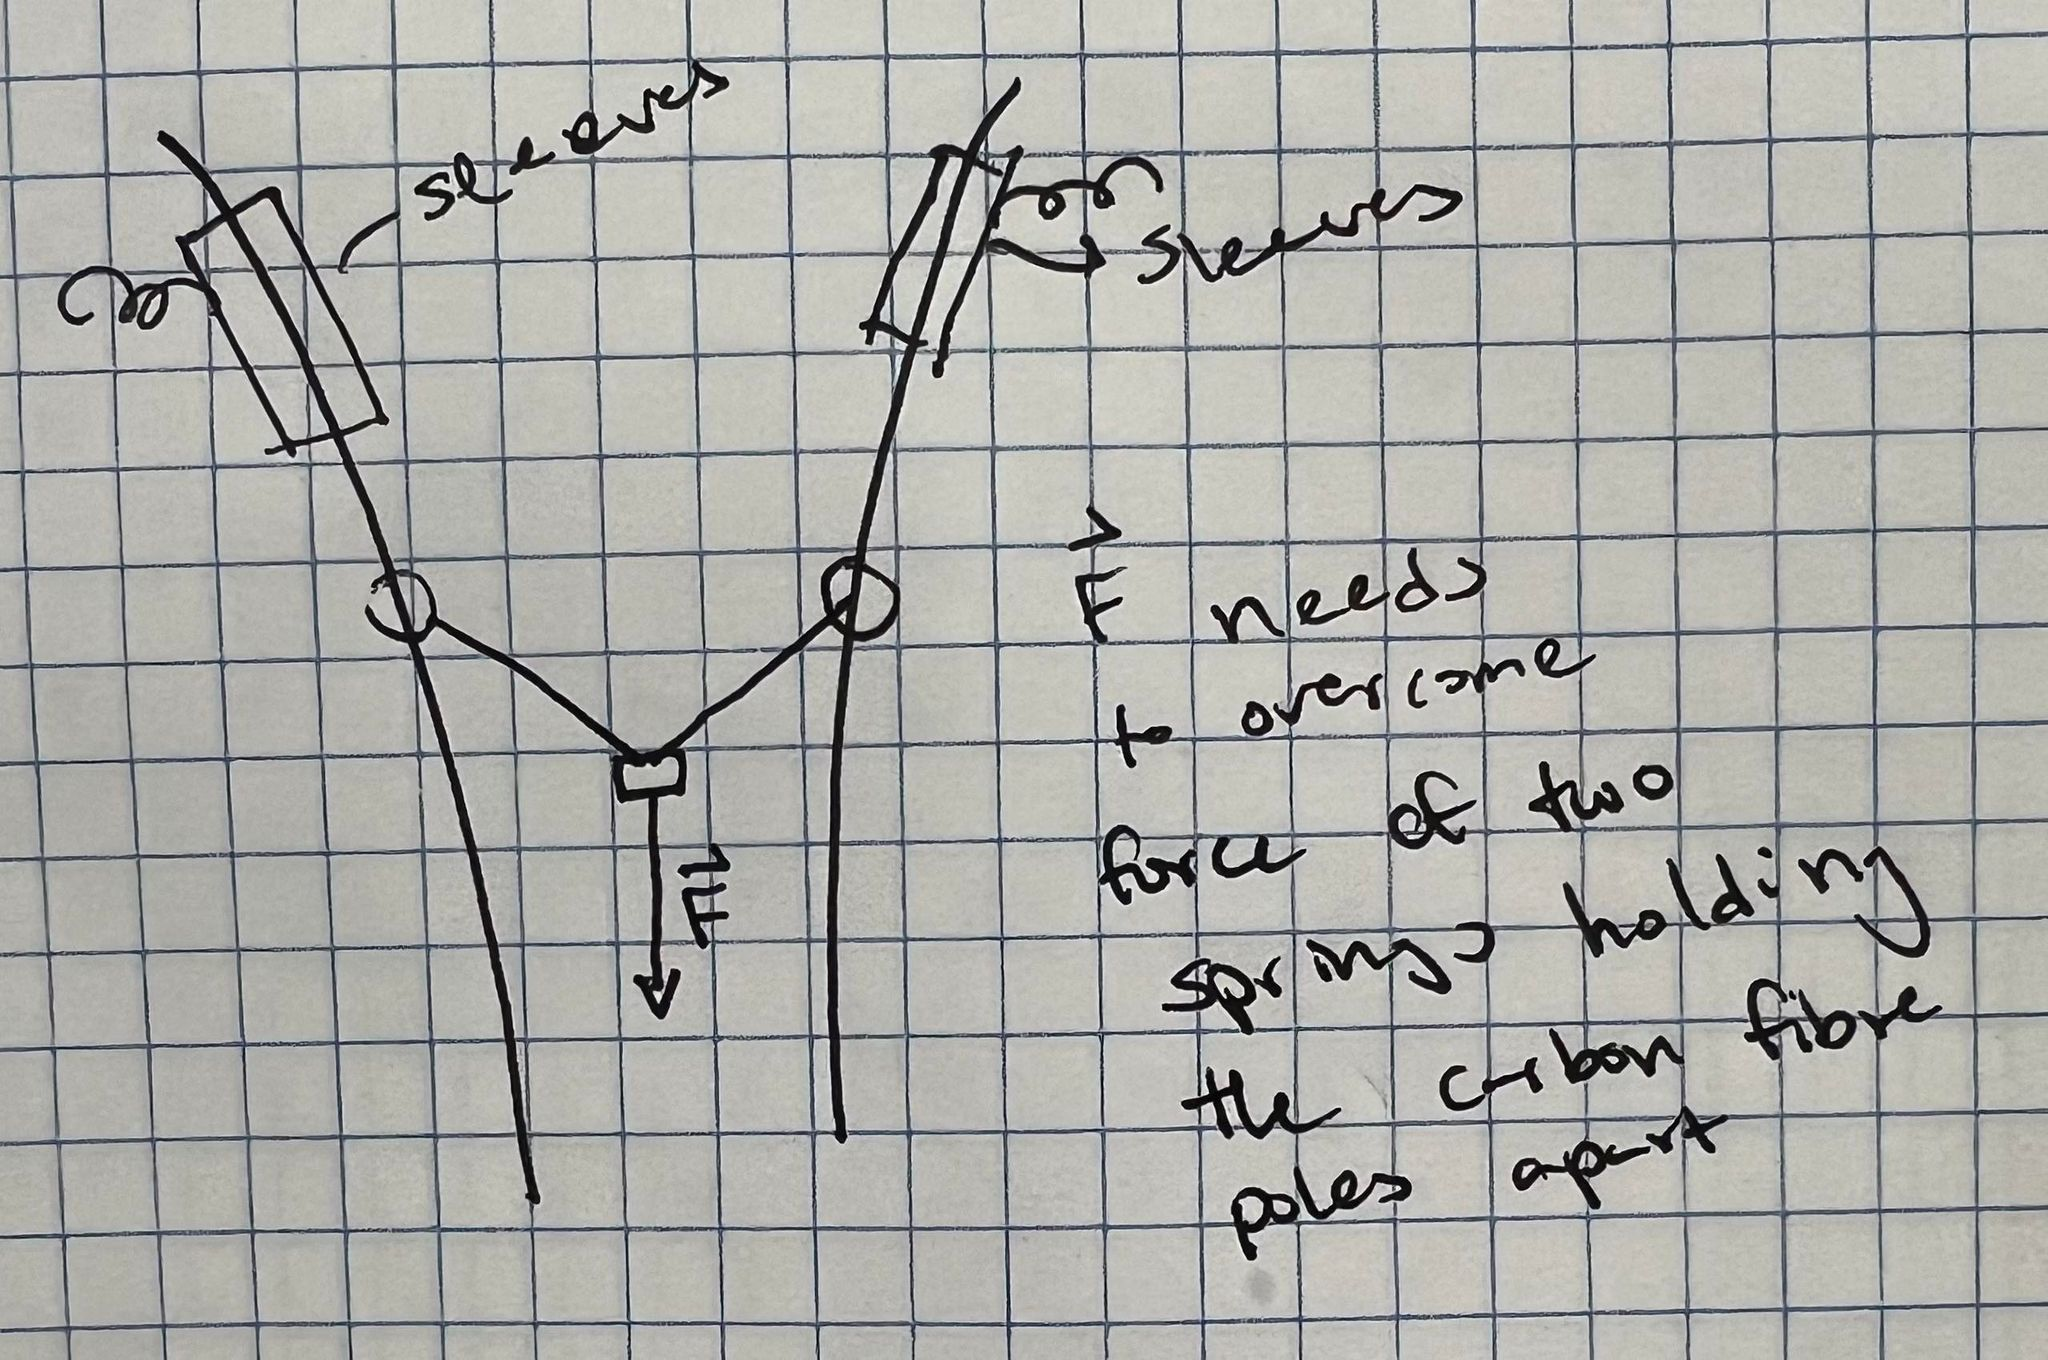 sleeves
sleeves
F needs
to overcome
force of two
springs holding
the carbon fibre
poles apart
F